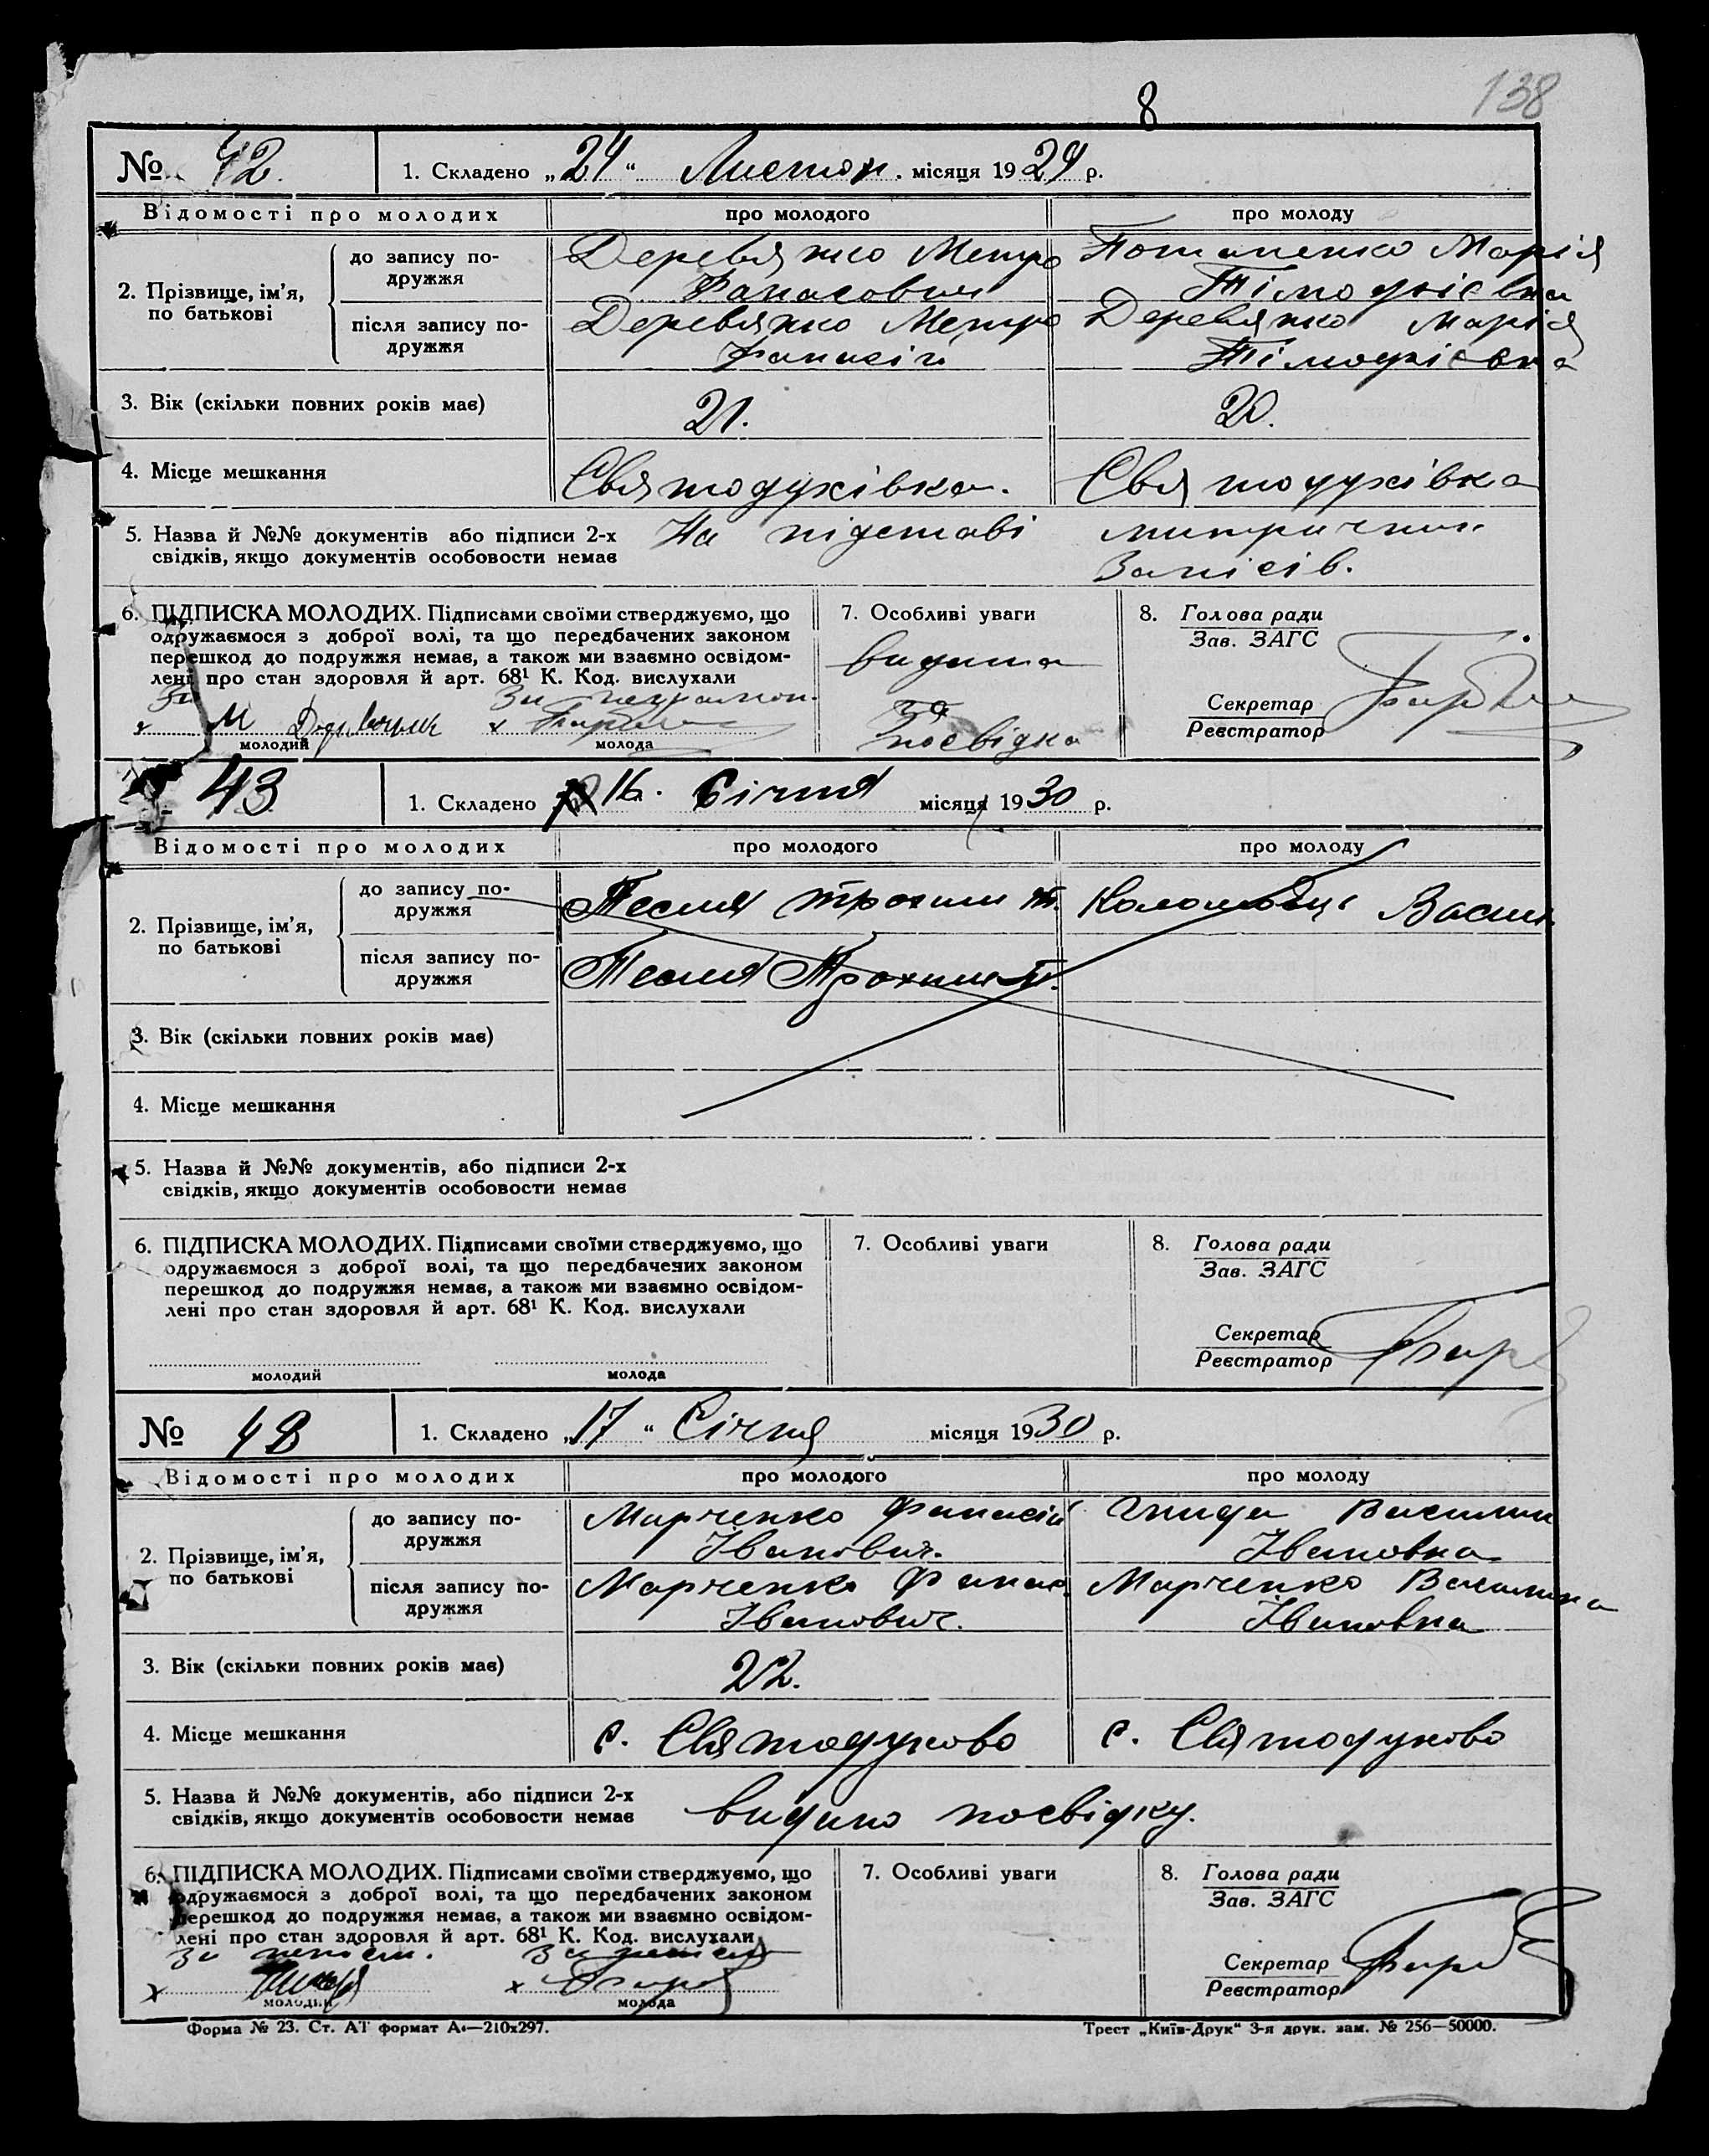 138
8
№ 42. 1. Складено „24“ Листоп. місяця 1929 р.
Відомості про молодих про молодого про молоду
2. Прізвище, ім’я, по батькові
до запису подружжя
Деревянко Метро Потапенко Марія
Фанасович Тімофієвна
після запису подружжя
Деревянко Метро Деревянко Марія
Фанасіч Тімофієвна
3. Вік (скільки повних років має) 21. 20.
4. Місце мешкання Святодухівка. Святодухівка
5. Назва й №№ документів або підписи 2-х На підставі метричних
свідків, якщо документів особовости немає Записів.
6. ПІДПИСКА МОЛОДИХ. Підписами своїми стверджуємо, що
одружаємося з доброї волі, та що передбачених законом
перешкод до подружжя немає, а також ми взаємно освідом-
лені про стан здоровля й арт. 68¹ К. Код. вислухали
За неграмот.
х М х
молодий молода
7. Особливі уваги
видана
посвідка
8. Голова ради
Зав. ЗАГС
Секретар
Реєстратор
43 1. Складено 16. Січня місяця 1930 р.
Відомості про молодих про молодого про молоду
2. Прізвище, ім’я, по батькові
до запису подружжя
Тесля Трохим Т. Василь
після запису подружжя
Тесля Трохим Т.
3. Вік (скільки повних років має)
4. Місце мешкання
5. Назва й №№ документів, або підписи 2-х
свідків, якщо документів особовости немає
6. ПІДПИСКА МОЛОДИХ. Підписами своїми стверджуємо, що
одружаємося з доброї волі, та що передбачених законом
перешкод до подружжя немає, а також ми взаємно освідом-
лені про стан здоровля й арт. 68¹ К. Код. вислухали
молодий молода
7. Особливі уваги
8. Голова ради
Зав. ЗАГС
Секретар
Реєстратор
№ 48 1. Складено „17“ Січня місяця 1930 р.
Відомості про молодих про молодого про молоду
2. Прізвище, ім’я, по батькові
до запису подружжя
Марченко Фанасій Гнида Василина
Іванович. Івановна
після запису подружжя
Марченко Фанас. Марченко Василина
Іванович. Івановна
3. Вік (скільки повних років має) 22.
4. Місце мешкання с. Святодухово с. Святодухово
5. Назва й №№ документів, або підписи 2-х видано посвідку.
свідків, якщо документів особовости немає
6. ПІДПИСКА МОЛОДИХ. Підписами своїми стверджуємо, що
одружаємося з доброї волі, та що передбачених законом
перешкод до подружжя немає, а також ми взаємно освідом-
лені про стан здоровля й арт. 68¹ К. Код. вислухали
х х
молодий молода
7. Особливі уваги
8. Голова ради
Зав. ЗАГС
Секретар
Реєстратор
Форма № 23. Ст. АТ формат А₄—210х297. Трест „Київ-Друк“ 3-я друк. зам. № 256—50000.